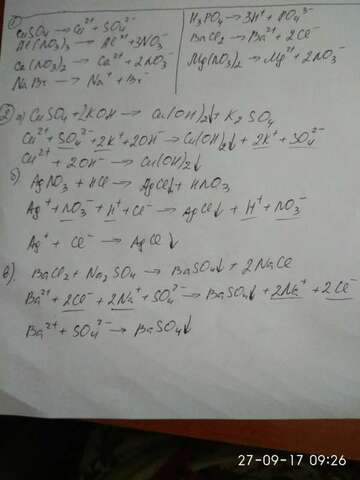 ①
CuSO₄ → Cu²⁺ + SO₄²⁻
Al(NO₃)₃ → Al³⁺ + 3NO₃⁻
Ca(NO₃)₂ → Ca²⁺ + 2NO₃⁻
NaBr → Na⁺ + Br⁻
H₃PO₄ → 3H⁺ + PO₄³⁻
BaCl₂ → Ba²⁺ + 2Cl⁻
Mg(NO₃)₂ → Mg²⁺ + 2NO₃⁻
② а) CuSO₄ + 2KOH → Cu(OH)₂↓ + K₂SO₄
Cu²⁺ + SO₄²⁻ + 2K⁺ + 2OH⁻ → Cu(OH)₂↓ + 2K⁺ + SO₄²⁻
Cu²⁺ + 2OH⁻ → Cu(OH)₂↓
б) AgNO₃ + HCl → AgCl↓ + HNO₃
Ag⁺ + NO₃⁻ + H⁺ + Cl⁻ → AgCl↓ + H⁺ + NO₃⁻
Ag⁺ + Cl⁻ → AgCl↓
в) BaCl₂ + Na₂SO₄ → BaSO₄↓ + 2NaCl
Ba²⁺ + 2Cl⁻ + 2Na⁺ + SO₄²⁻ → BaSO₄↓ + 2Na⁺ + 2Cl⁻
Ba²⁺ + SO₄²⁻ → BaSO₄↓
27-09-17 09:26